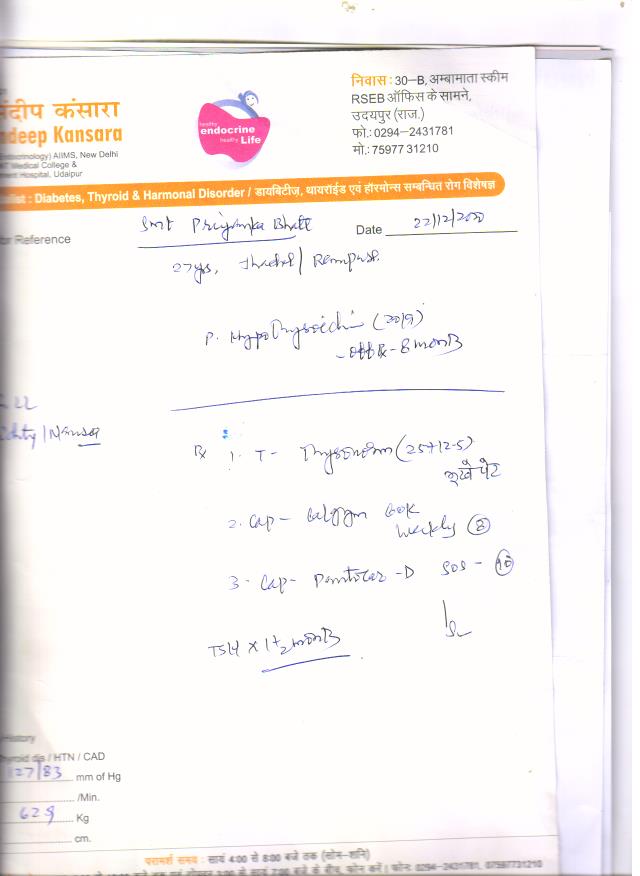 निवास : 30-B, अम्बामाता स्कीम
RSEB ऑफिस के सामने,
उदयपुर (राज.)
फो.: 0294-2431781
मो.: 75977 31210
healthy
endocrine
healthy Life
ंदीप कंसारा
deep Kansara
docrinology) AIIMS, New Delhi
Medical College &
ment Hospital, Udaipur
alist : Diabetes, Thyroid & Harmonal Disorder / डायबिटीज, थायरॉईड एवं हॉरमोन्स सम्बन्धित रोग विशेषज्ञ
or Reference
Smt Priyanka Bhatt
Date 22/12/2020
27 yrs,
P. Hypothyroidi (2019)
- off Rx - 8 month
Rx 1. T - Thyronorm (25+12.5)
भूखे पेट
2. Cap - 60K
Weekly (8)
3. Cap - Pantocar -D SOS - (10)
TSH x 1+2 month
History
hyroid dis / HTN / CAD
127/83 mm of Hg
/Min.
62.9 Kg
cm.
परामर्श समय : सायं 4:00 से 8:00 बजे तक (सोम-शनि)
फोन: 0294-2431781, 07597731210